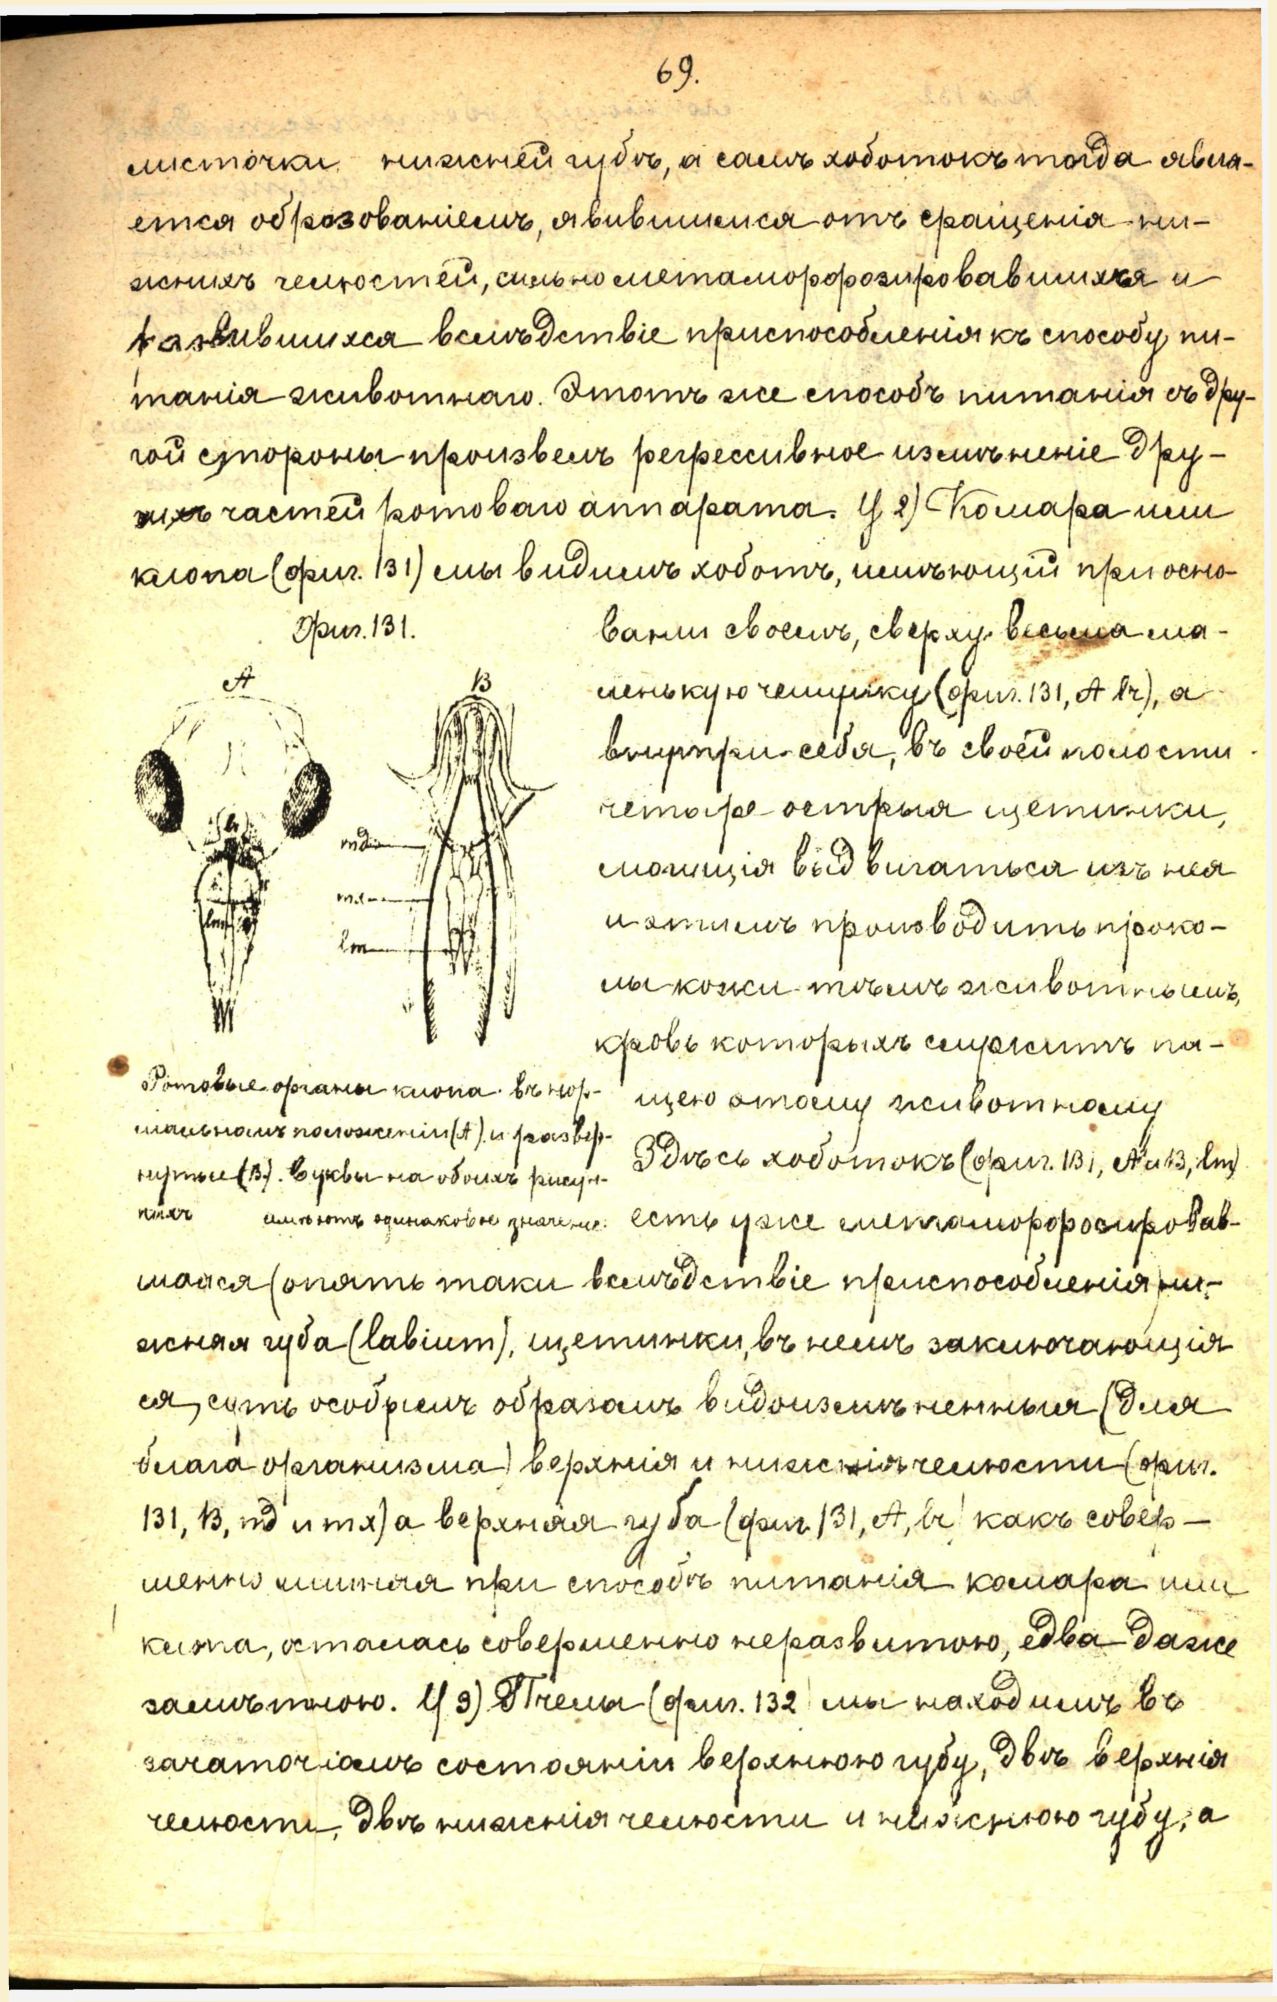 69.
листочки нижней губѣ, а самъ хоботокъ тогда явля-
ется образованіемъ, явившимися отъ сращенія ни-
жнихъ челюстей, сильно метаморфозировавшихся и
развившихся вслѣдствіе приспособленія къ способу пи-
танія животнаго. Этотъ же способъ питанія съ дру-
гой стороны произвелъ регрессивное измѣненіе дру-
гихъ частей ротоваго аппарата. У 2) Комара или
клопа (фиг. 131) мы видимъ хоботъ, имѣющій при осно-
Фиг. 131.
A B
lr
md
mx
lm
lm
Ротовые органы клопа въ нор-
мальномъ положеніи (A) и развер-
нутые (B). Буквы на обоихъ рисун-
кахъ имѣютъ одинаковое значеніе.
ваніи своемъ, сверху весьма ма-
ленькую чешуйку (фиг. 131, A lr), а
внутри себя, въ своей полости
четыре острыя щетинки,
могущія выдвигаться изъ нея
и этимъ производить проко-
лы кожи тѣмъ животнымъ,
кровь которыхъ служитъ пи-
щею этому животному
Здѣсь хоботокъ (фиг. 131, A и B, lm)
есть уже метаморфозировав-
шаяся (опять таки вслѣдствіе приспособленія) ни-
жняя губа (labium), щетинки, въ немъ заключающія
ся, суть особымъ образомъ видоизмѣненныя (для
блага организма) верхнія и нижнія челюсти (фиг.
131, B, md и mx) а верхняя губа (фиг. 131, A, lr) какъ совер-
шенно лишняя при способѣ питанія комара или
клопа, осталась совершенно неразвитою, едва даже
замѣтною. У 3) Пчелы (фиг. 132) мы находимъ въ
зачаточномъ состояніи верхнюю губу, двѣ верхнія
челюсти, двѣ нижнія челюсти и нижнюю губу, а